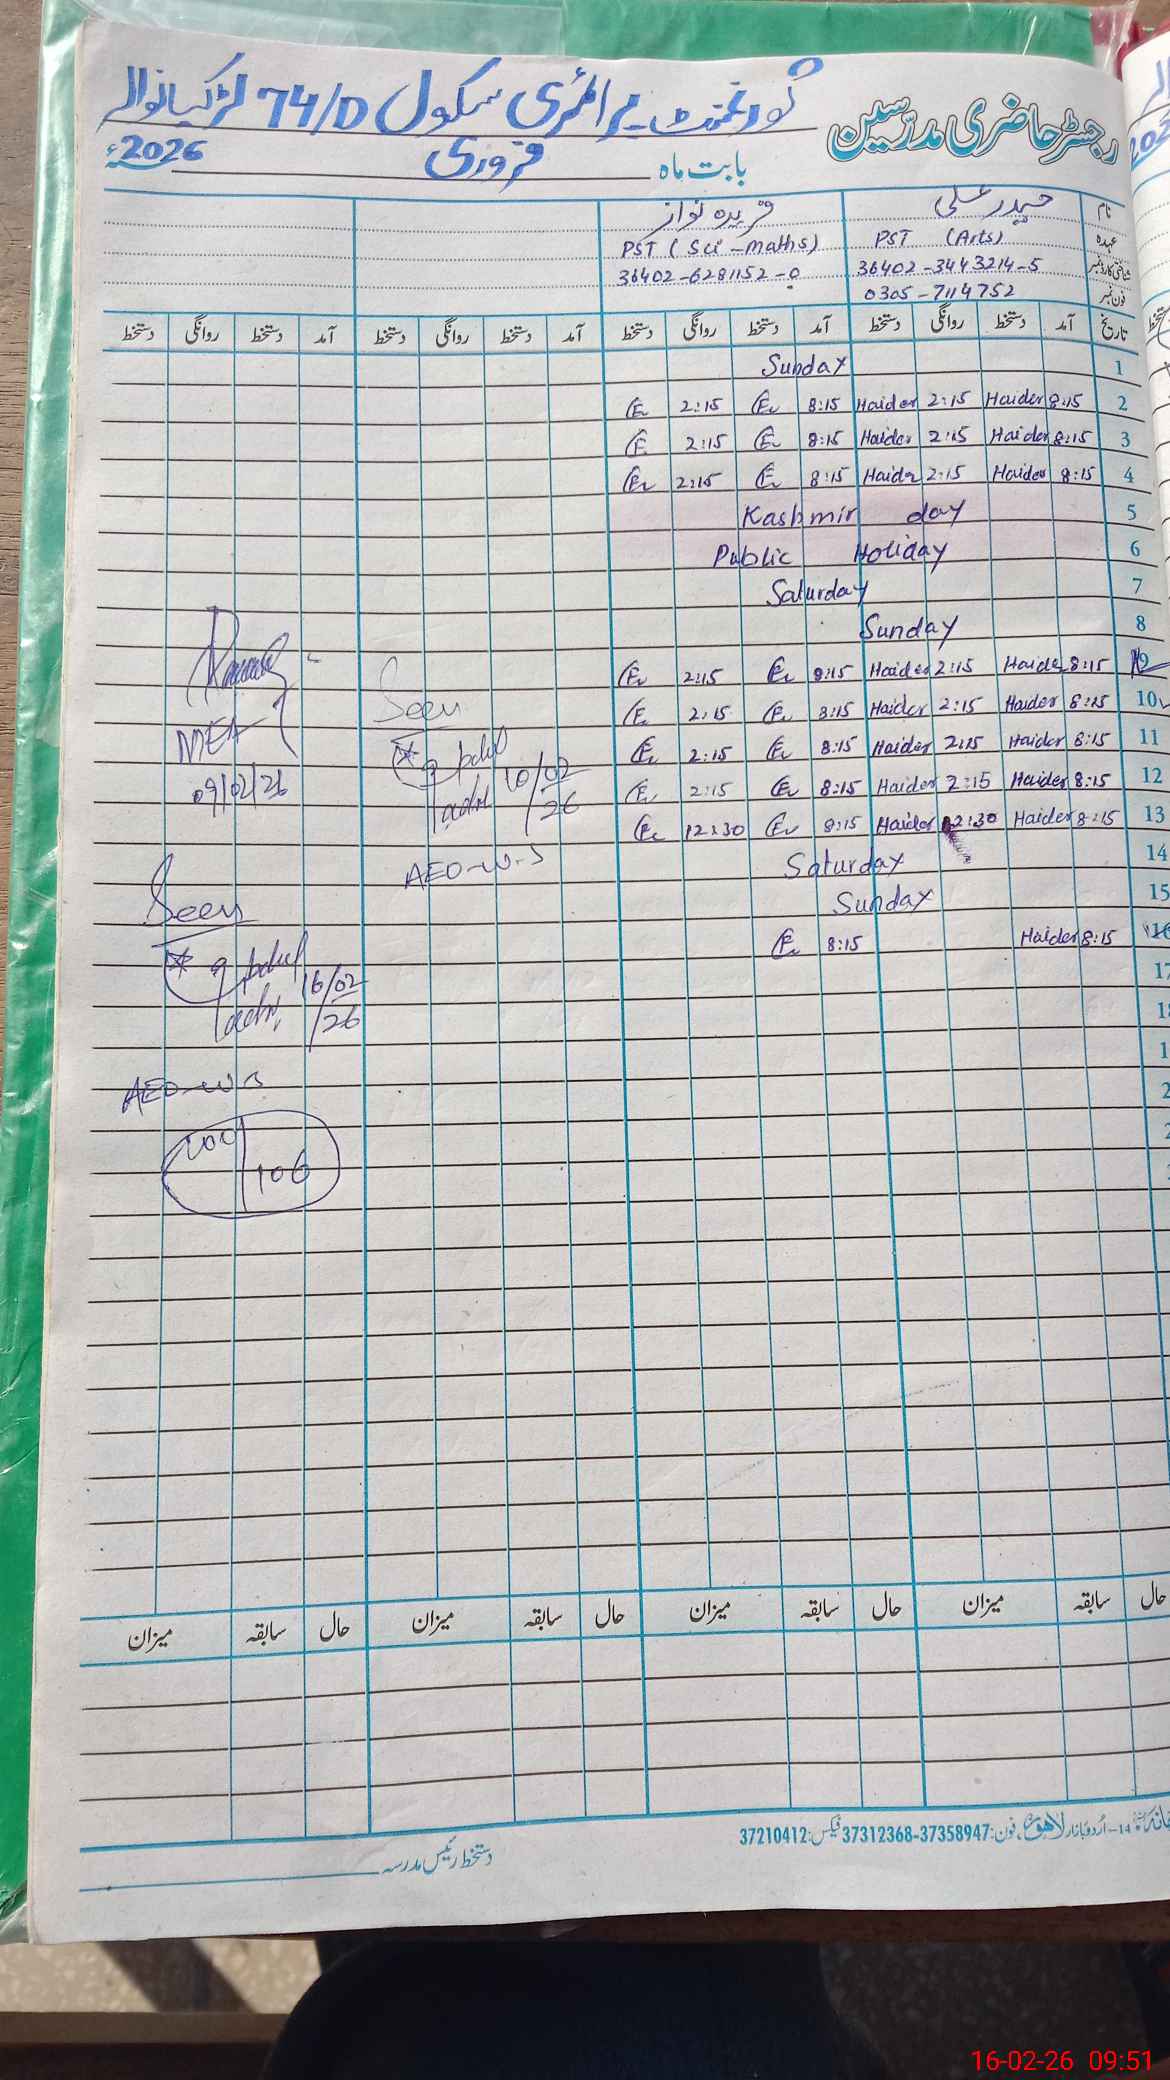 رجسٹر حاضری مدرّسین
گورنمنٹ پرائمری سکول 74/D لڑکیانوالہ
بابت ماہ فروری 2026ء
نام حیدر علی فریدہ نواز
عہدہ PST (Arts) PST (Sci-maths)
شناختی کارڈ نمبر 36402-3443214-5 36402-6281152-0
فون نمبر 0305-7114752
تاریخ آمد دستخط روانگی دستخط آمد دستخط روانگی دستخط آمد دستخط روانگی دستخط آمد دستخط روانگی دستخط
1 Sunday
2 8:15 Haider 2:15 Haider 8:15 2:15
3 8:15 Haider 2:15 Haider 8:15 2:15
4 8:15 Haider 2:15 Haider 8:15 2:15
5 Kashmir day
6 Public Holiday
7 Saturday
8 Sunday
9 8:15 Haider 2:15 Haider 8:15 2:15
10 8:15 Haider 2:15 Haider 8:15 2:15
11 8:15 Haider 2:15 Haider 8:15 2:15
12 8:15 Haider 2:15 Haider 8:15 2:15
13 8:15 Haider 12:30 Haider 8:15 12:30
14 Saturday
15 Sunday
16 8:15 Haider 8:15
17
MEA
09/02/26
Seen
10/02/26
AEO-W-S
Seen
16/02/26
AEO-W-S
100/106
حال سابقہ میزان حال سابقہ میزان حال سابقہ میزان حال سابقہ میزان
14-اُردو بازار لاہور، فون: 37312368-37358947 فیکس: 37210412
دستخط رئیس مدرسہ
16-02-26 09:51